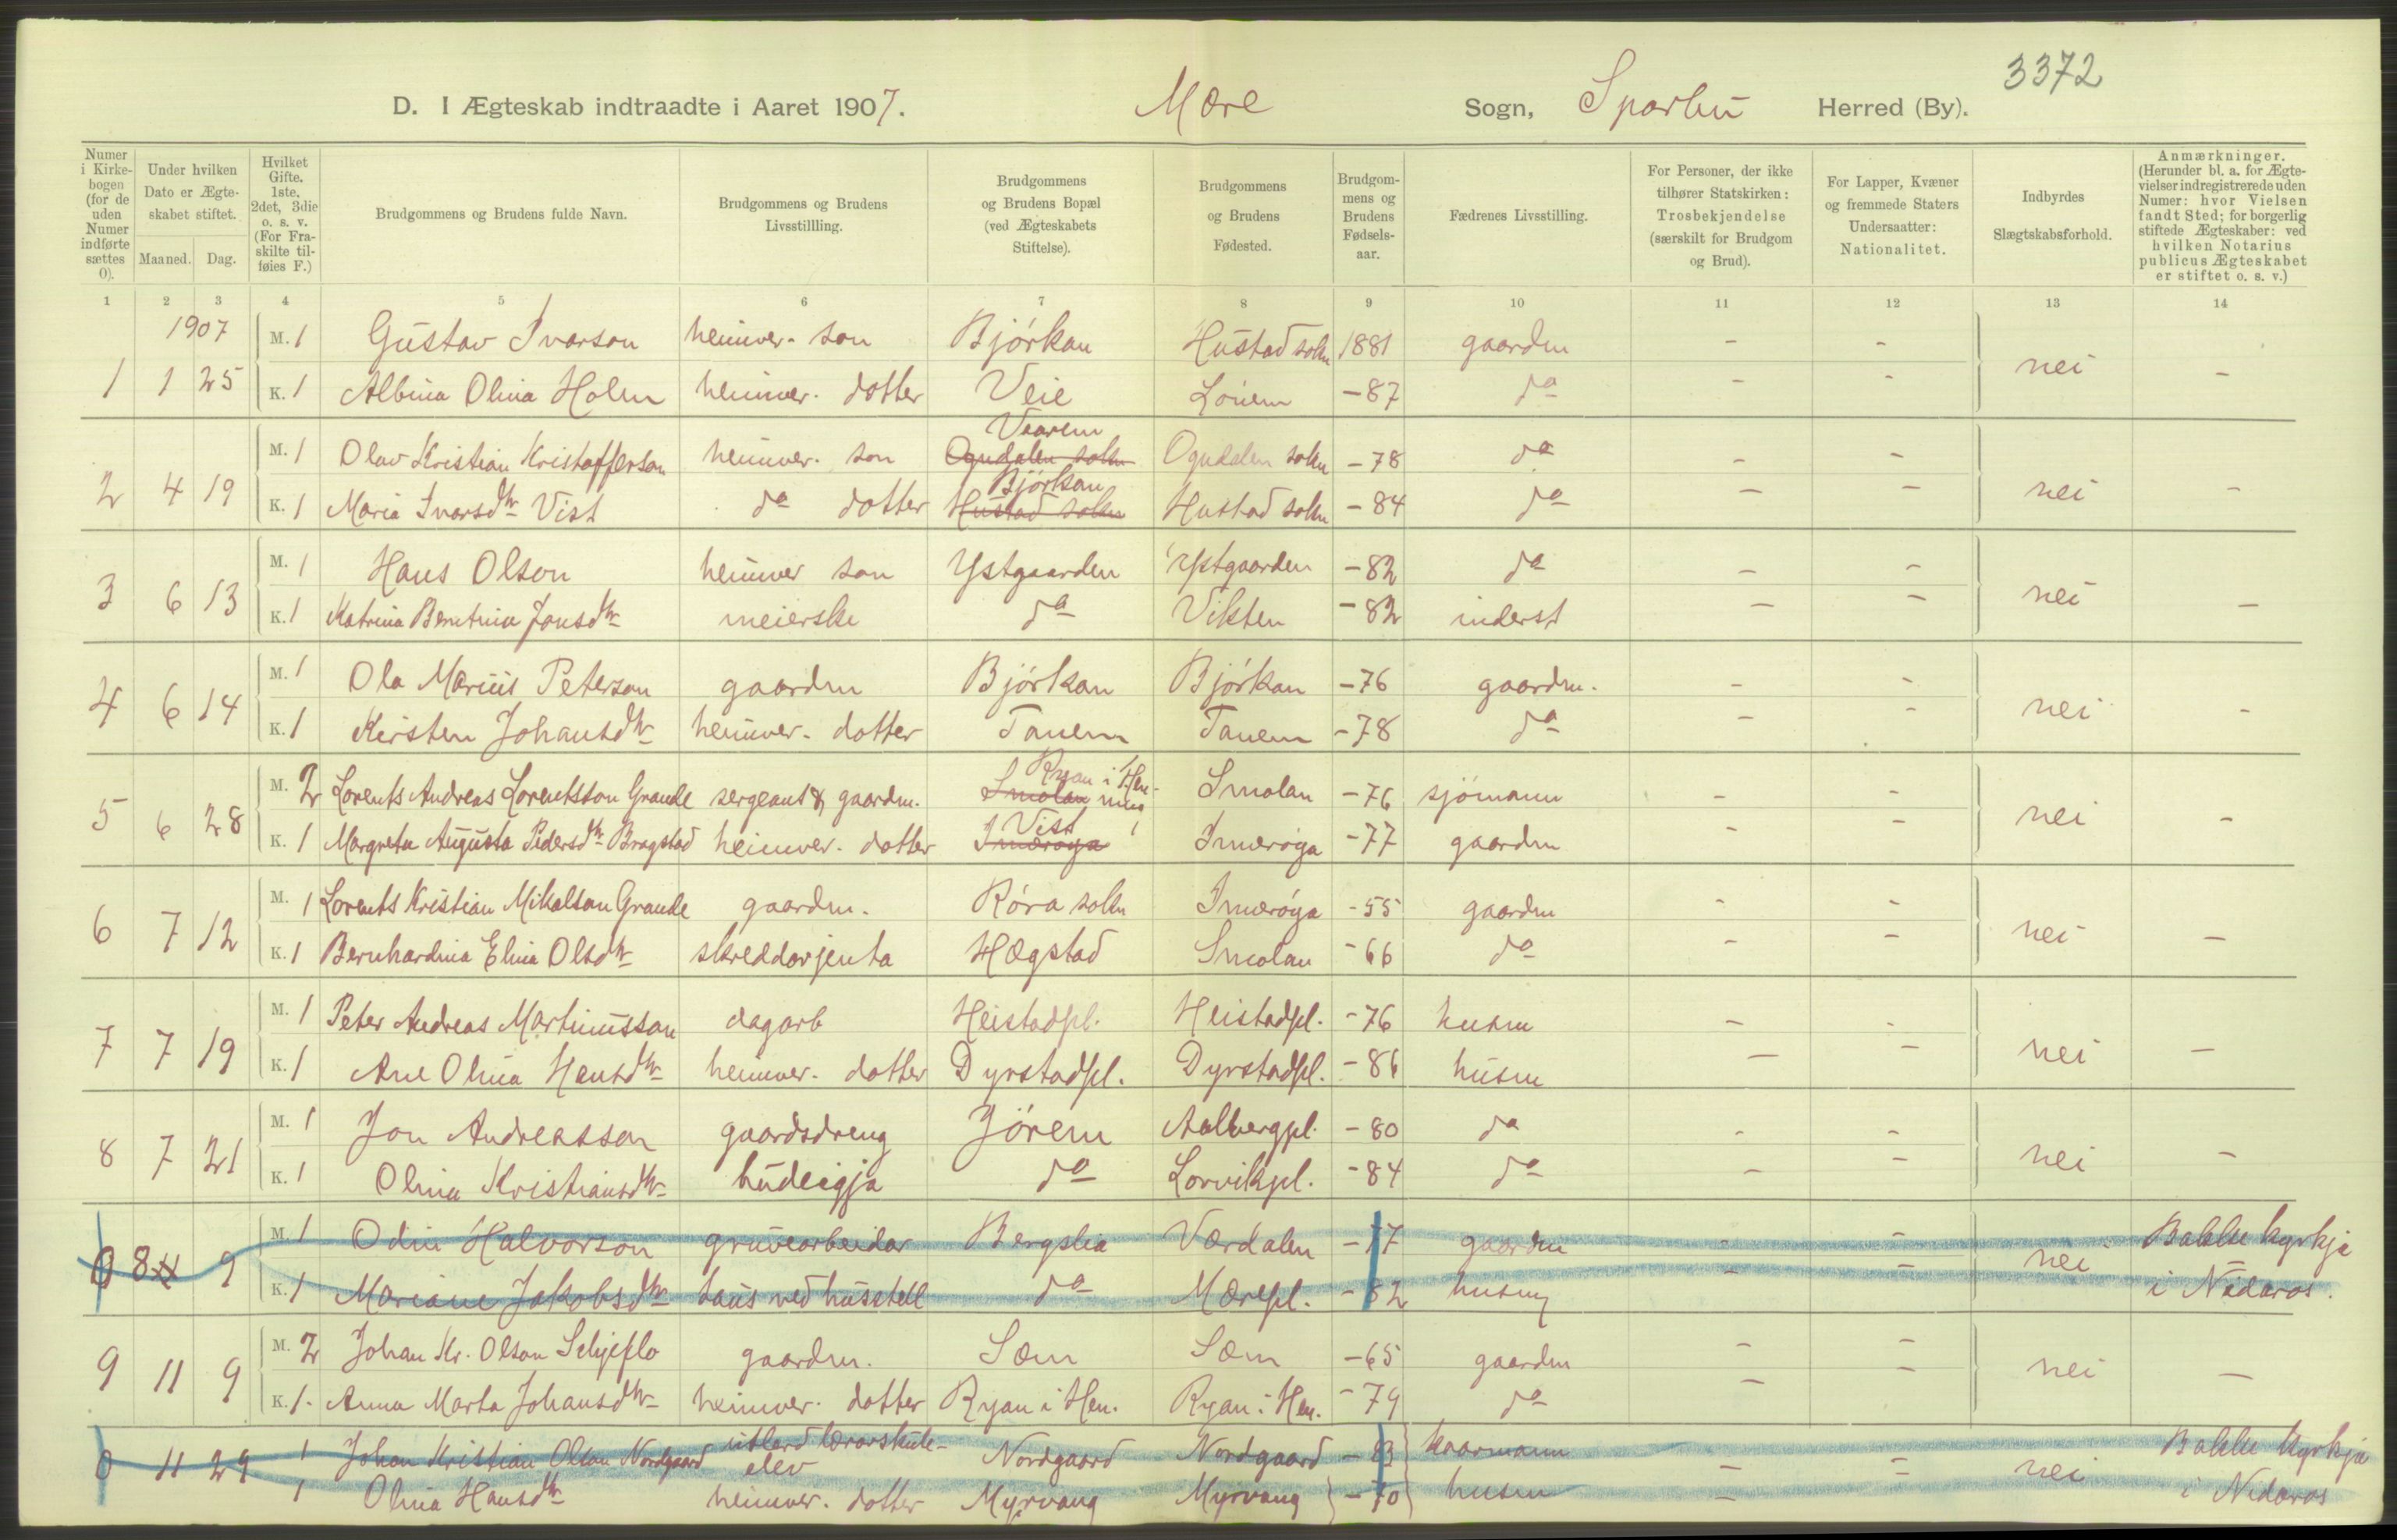 3372
D. I Ægteskab indtraadte i Aaret 1907. Mære Sogn, Sparbu Herred (By).
Numer i Kirkebogen (for de uden Numer indførte sættes 0).
Under hvilken Dato er Ægteskabet stiftet.
Maaned. Dag.
Hvilket Gifte. 1ste, 2det, 3die o. s. v. (For Fraskilte tilføies F.)
Brudgommens og Brudens fulde Navn.
Brudgommens og Brudens Livsstillling.
Brudgommens og Brudens Bopæl (ved Ægteskabets Stiftelse).
Brudgommens og Brudens Fødested.
Brudgommens og Brudens Fødselsaar.
Fædrenes Livsstilling.
For Personer, der ikke tilhører Statskirken: Trosbekjendelse (særskilt for Brudgom og Brud).
For Lapper, Kvæner og fremmede Staters Undersaatter: Nationalitet.
Indbyrdes Slægtskabsforhold.
Anmærkninger. (Herunder bl. a. for Ægtevielser indregistrerede uden Numer: hvor Vielsen fandt Sted; for borgerlig stiftede Ægteskaber: ved hvilken Notarius publicus Ægteskabet er stiftet o. s. v.)
1 2 3 4 5 6 7 8 9 10 11 12 13 14
1907 M. 1 Gustav Ivarson heimver. son Björkan Hustad sokn 1881 gaardm - -
1 1 25 K. 1 Albina Olina Holm heimver. dotter Veie Lönem -87 do - - nei -
Vaarem
M. 1 Olav Kristian Kristofferson heimver. son Ogndalen sokn Ogndalen sokn -78 do - -
Björkan
2 4 19 K. 1 Maria Ivarsdtr Vist do dotter Hustad sokn Hustad sokn -84 do - - nei -
M. 1 Hans Olson heimver son Ystgaarden Ystgaarden -82 do - -
3 6 13 K. 1 Katrina Berntina Jonsdtr meierske do Vikten -82 inderst - - nei -
M. 1 Ola Marius Peterson gaardm Björkan Björkan -76 gaardm. - -
4 6 14 K. 1 Kirsten Johansdtr heimver. dotter Tanem Tanem -78 do - - nei -
Ryan i Henning
M. 2 Lorents Andreas Lorentsson Grande sergeant & gaardm. Smolan Smolan -76 sjömann - -
Vist
5 6 28 K. 1 Margreta Augusta Pedersdtr Bragstad heimver. dotter Inderöya Inderöya -77 gaardm - - nei -
M. 1 Lorents Kristian Mikalson Grande gaardm. Röra sokn Inderöya -55 gaardm - -
6 7 12 K. 1 Bernhardina Elina Olsdtr skreddarjenta Hægstad Smolan -66 do - - nei -
M. 1 Peter Andreas Martinusson dagarb Heistadpl. Heistadpl. -76 husm - -
7 7 19 K. 1 Ane Olina Hansdtr heimver. dotter Dyrstadpl. Dyrstadpl. -86 husm - - nei -
M. 1 Jon Andreasson gaardsdreng Jörem Aalbergpl. -80 do - -
8 7 21 K. 1 Olina Kristiansdtr budeigja do Lorvikpl. -84 do - - nei -
M. 1 Odin Halvorson gruvearbeidar Bergslia Værdalen -77 gaardm - - Bakke kyrkja
0 8 9 K. 1 Mariane Jakobsdtr taus ved husstell do Mærepl. -82 husm - - nei i Nidaros.
M. 2 Johan Kr. Olson Schjeflo gaardm. Sem Sem -65 gaardm - -
9 11 9 K. 1. Anna Marta Johansdtr heimver. dotter Ryan i Hen. Ryan i Hen. -79 do - - nei -
0 11 29 1 Johan Kristian Olson Nordgaard utlærd lærarskule-elev Nordgaard Nordgaard -83 kaarmann - - nei Bakke kyrkja
1 Olina Hansdtr heimver. dotter Myrvang Myrvang -70 husm - - i Nidaros